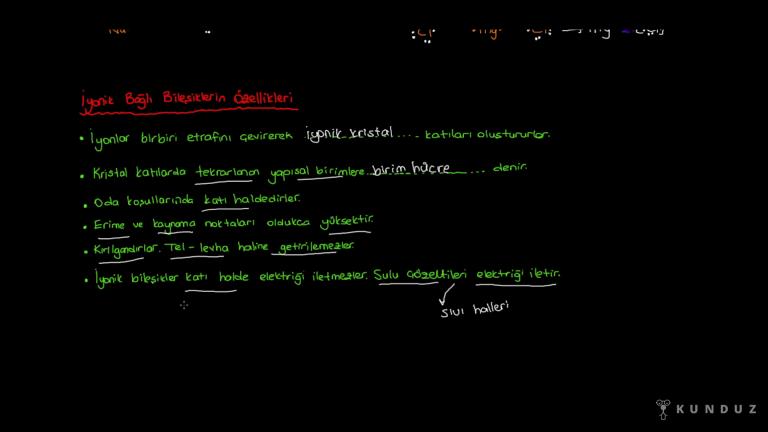 İyonik Bağlı Bileşiklerin Özellikleri
• İyonlar birbiri etrafını çevirerek iyonik kristal .... katıları oluştururlar.
• Kristal katılarda tekrarlanan yapısal birimlere birim hücre ... denir.
• Oda koşullarında katı haldedirler.
• Erime ve kaynama noktaları oldukca yüksektir.
• Kırılgandırlar. Tel - levha haline getirilemezler.
• İyonik bileşikler katı halde elektriği iletmezler. Sulu çözeltileri elektriği iletir.
sıvı halleri
KUNDUZ